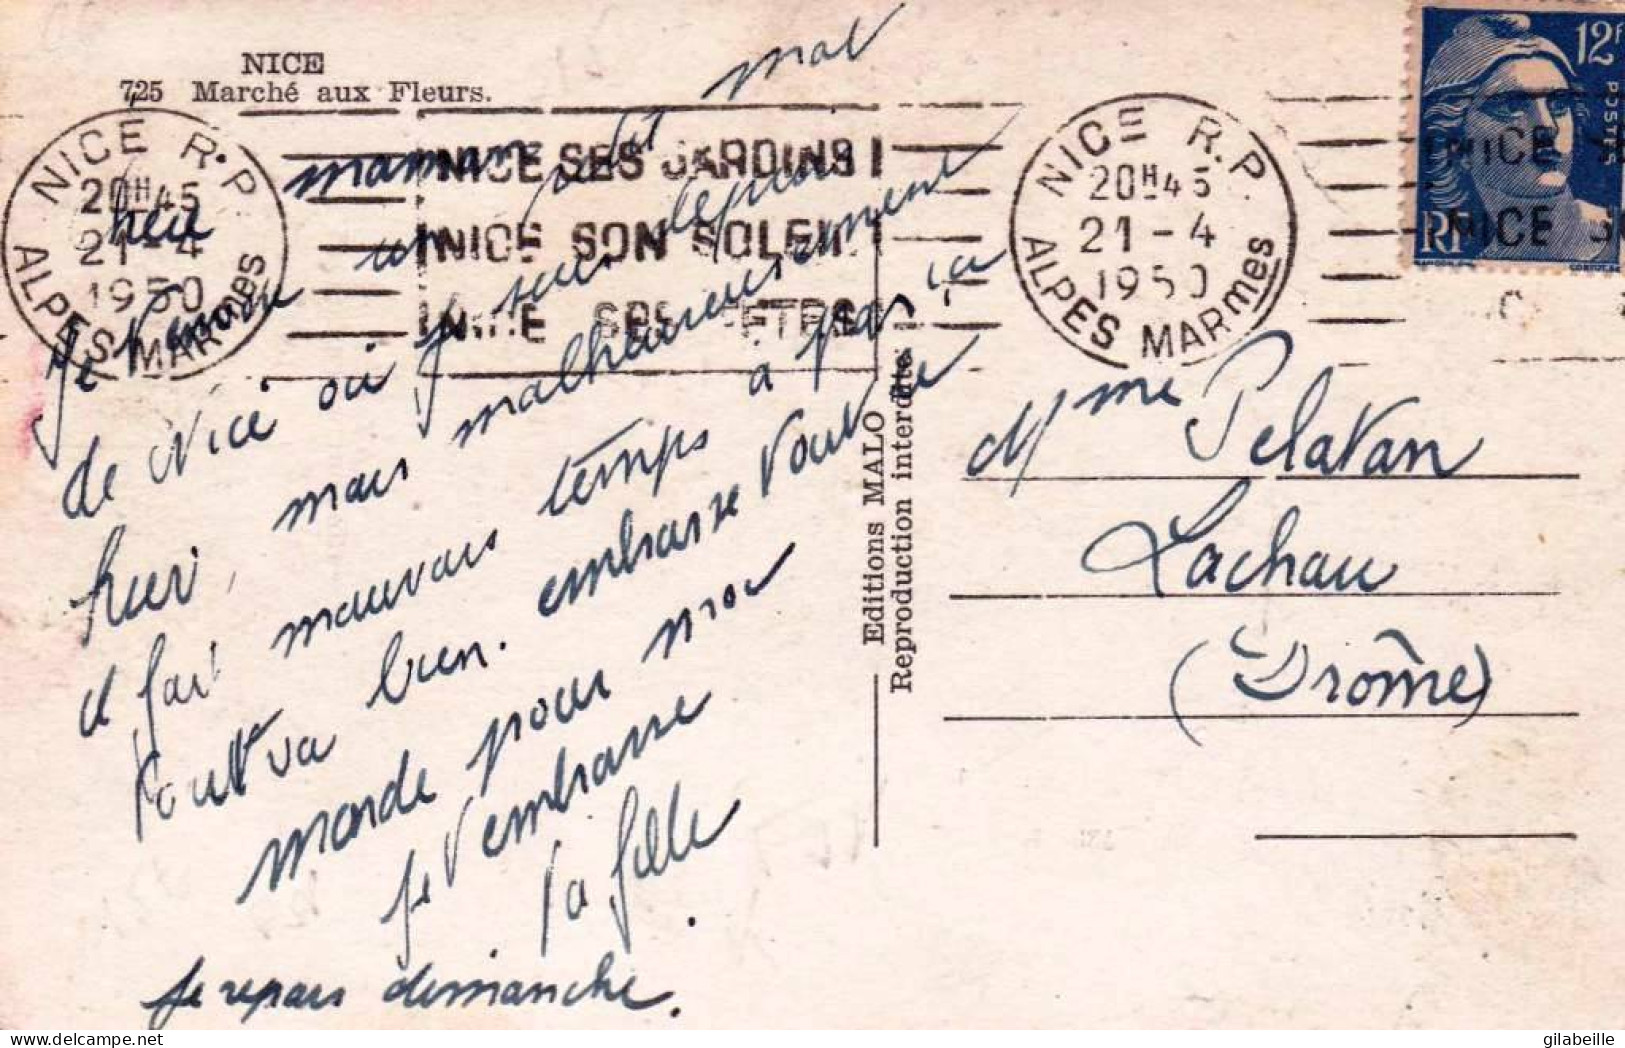 NICE
725 Marché aux Fleurs.
NICE R.P.
20H45
21-4
1950
ALPES MARmes
NICE SES JARDINS
NICE SON SOLEIL
NICE SES FETES
NICE R.P.
20H45
21-4
1950
ALPES MARmes
12f
POSTES
RF
NICE
NICE
maman
Je t'envoie un petit mot
de Nice où je suis depuis
hier, mais malheureusement
il fait mauvais temps à part ça
tout va bien. embrasse tout le
monde pour moi
Je t'embrasse
ta fille
Je repars dimanche.
Editions MALO
Reproduction interdite
Mme Pelatan
Lachau
(Drôme)
gilabeille